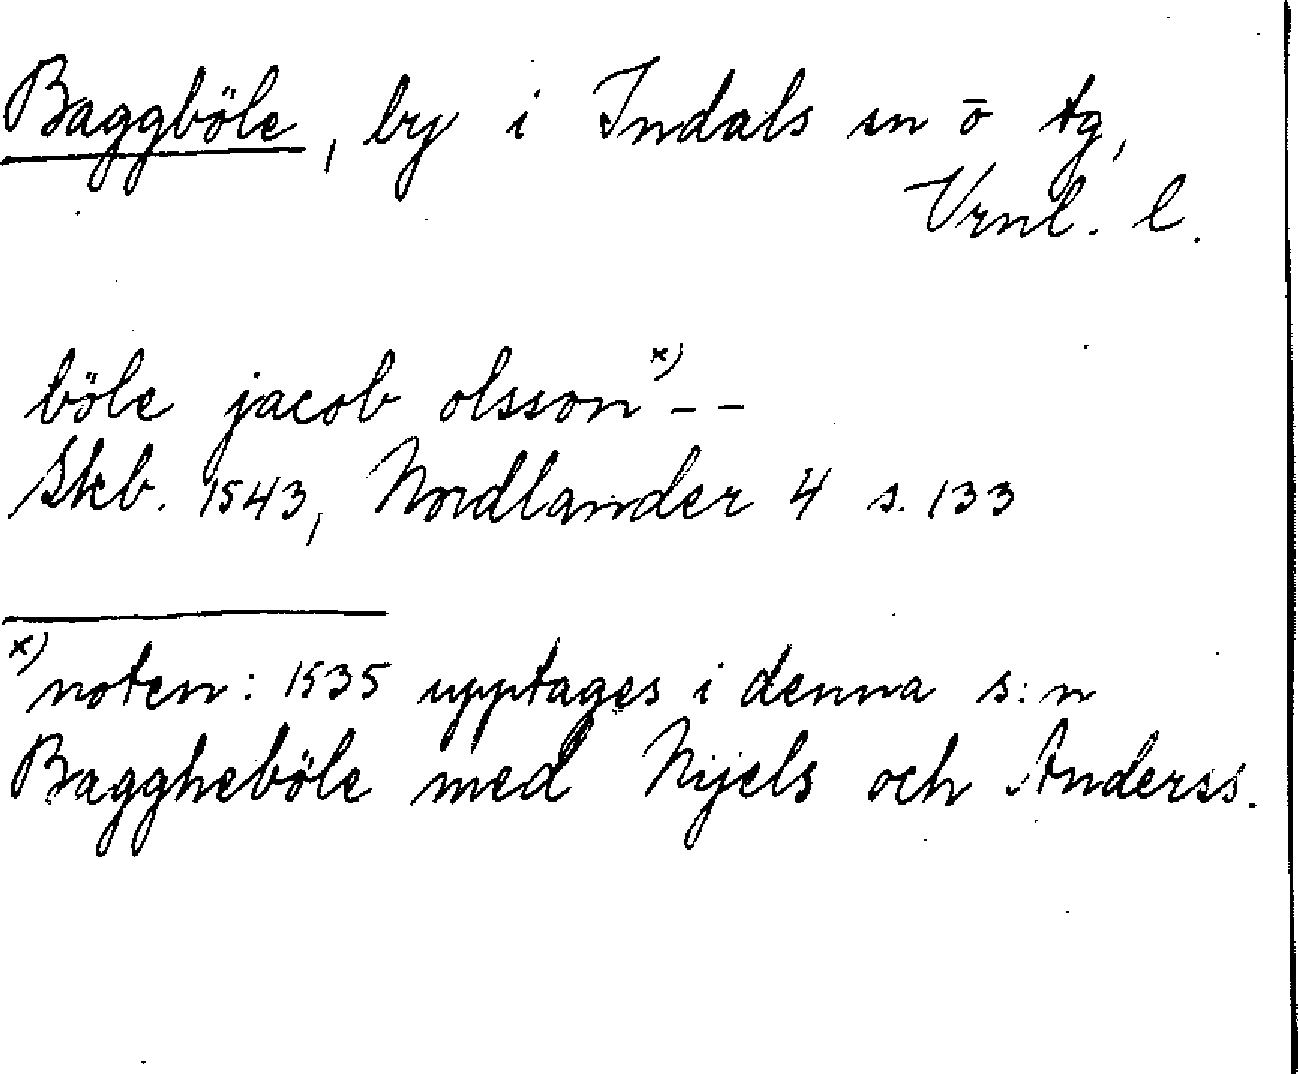 Baggböle, by i Indals sn o tg,
Vrnl. l.
böle jacob olsson x) - -
Skb. 1543, Nordlander 4 s. 133
x) noten: 1535 upptages i denna s:n
Baggheböle med Nijels och Anderss.